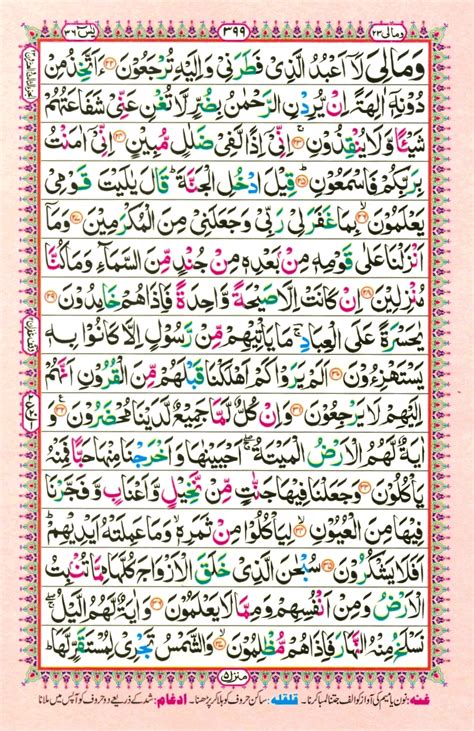 يٰسٓ ٣٦
٣٩٩
ومالی ٢٣
وَمَالِیَ لَاۤ اَعْبُدُ الَّذِیْ فَطَرَنِیْ وَاِلَیْهِ تُرْجَعُوْنَ ٢٢ ءَاَتَّخِذُ مِنْ
دُوْنِهٖۤ اٰلِهَةً اِنْ یُّرِدْنِ الرَّحْمٰنُ بِضُرٍّ لَّا تُغْنِ عَنِّیْ شَفَاعَتُهُمْ
شَیْـًٔا وَّلَا یُنْقِذُوْنِ ٢٣ اِنِّیْۤ اِذًا لَّفِیْ ضَلٰلٍ مُّبِیْنٍ ٢٤ اِنِّیْۤ اٰمَنْتُ
بِرَبِّكُمْ فَاسْمَعُوْنِ ٢٥ قِیْلَ ادْخُلِ الْجَنَّةَ ؕ قَالَ یٰلَیْتَ قَوْمِیْ
یَعْلَمُوْنَ ٢٦ بِمَا غَفَرَ لِیْ رَبِّیْ وَجَعَلَنِیْ مِنَ الْمُكْرَمِیْنَ ٢٧ وَمَاۤ
اَنْزَلْنَا عَلٰی قَوْمِهٖ مِنْۢ بَعْدِهٖ مِنْ جُنْدٍ مِّنَ السَّمَآءِ وَمَا كُنَّا
مُنْزِلِیْنَ ٢٨ اِنْ كَانَتْ اِلَّا صَیْحَةً وَّاحِدَةً فَاِذَا هُمْ خٰمِدُوْنَ ٢٩
یٰحَسْرَةً عَلَی الْعِبَادِ ۚ مَا یَاْتِیْهِمْ مِّنْ رَّسُوْلٍ اِلَّا كَانُوْا بِهٖ
یَسْتَهْزِءُوْنَ ٣٠ اَلَمْ یَرَوْا كَمْ اَهْلَكْنَا قَبْلَهُمْ مِّنَ الْقُرُوْنِ اَنَّهُمْ
اِلَیْهِمْ لَا یَرْجِعُوْنَ ٣١ وَاِنْ كُلٌّ لَّمَّا جَمِیْعٌ لَّدَیْنَا مُحْضَرُوْنَ ٣٢ وَ
اٰیَةٌ لَّهُمُ الْاَرْضُ الْمَیْتَةُ ۖۚ اَحْیَیْنٰهَا وَاَخْرَجْنَا مِنْهَا حَبًّا فَمِنْهُ
یَاْكُلُوْنَ ٣٣ وَجَعَلْنَا فِیْهَا جَنّٰتٍ مِّنْ نَّخِیْلٍ وَّاَعْنَابٍ وَّفَجَّرْنَا
فِیْهَا مِنَ الْعُیُوْنِ ٣٤ لِیَاْكُلُوْا مِنْ ثَمَرِهٖ ۙ وَمَا عَمِلَتْهُ اَیْدِیْهِمْ ؕ
اَفَلَا یَشْكُرُوْنَ ٣٥ سُبْحٰنَ الَّذِیْ خَلَقَ الْاَزْوَاجَ كُلَّهَا مِمَّا تُنْۢبِتُ
الْاَرْضُ وَمِنْ اَنْفُسِهِمْ وَمِمَّا لَا یَعْلَمُوْنَ ٣٦ وَاٰیَةٌ لَّهُمُ الَّیْلُ ۖۚ
نَسْلَخُ مِنْهُ النَّهَارَ فَاِذَا هُمْ مُّظْلِمُوْنَ ٣٧ وَالشَّمْسُ تَجْرِیْ لِمُسْتَقَرٍّ لَّهَا ؕ
منزل ٥
غنه: نون یا میم کی آواز کو الف جتنا لمبا کرنا۔ قلقله: ساکن حروف کو ہلا کر پڑھنا۔ ادغام: شد کے ذریعے دو حروف کو آپس میں ملانا